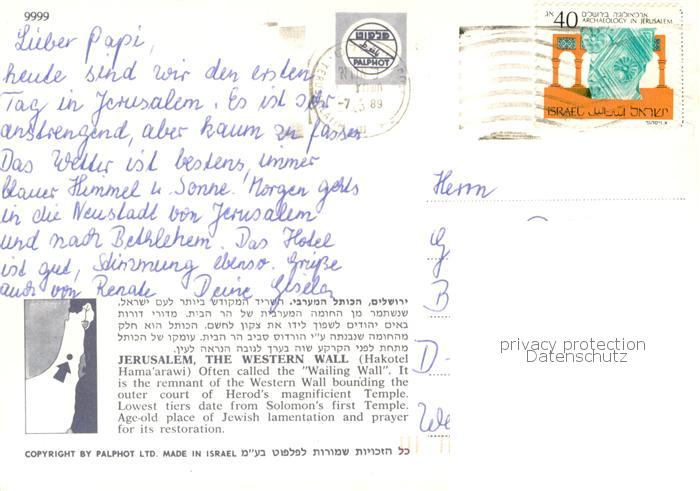 9999
Lieber Papi,
heute sind wir den ersten
Tag in Jerusalem. Es ist sehr
anstrengend, aber kaum zu fassen
Das Wetter ist bestens, immer
blauer Himmel u. Sonne. Morgen gehts
in die Neustadt von Jerusalem
und nach Bethlehem. Das Hotel
ist gut, Stimmung ebenso. Grüße
auch von Renate Deine Gisela
פלפוט
PALPHOT
-7. 3 89
40 אג
ארכיאולוגיה בירושלים
ARCHAEOLOGY IN JERUSALEM
ISRAEL اسرائيل ישראל
Herrn
G
B
D-
We
privacy protection
Datenschutz
ירושלים, הכותל המערבי. השריד המקודש ביותר לעם ישראל,
שנשתמר מן החומה המערבית של הר הבית. מדורי דורות
באים יהודים לשפוך לידו את צקון לחשם. הכותל הוא חלק
מהחומה שנבנתה ע״י הורדוס סביב הר הבית. עומקו של הכותל
מתחת לפני הקרקע שוה בערך לגובה הנראה לעין.
JERUSALEM, THE WESTERN WALL (Hakotel
Hama'arawi) Often called the "Wailing Wall". It
is the remnant of the Western Wall bounding the
outer court of Herod's magnificient Temple.
Lowest tiers date from Solomon's first Temple.
Age-old place of Jewish lamentation and prayer
for its restoration.
COPYRIGHT BY PALPHOT LTD. MADE IN ISRAEL כל הזכויות שמורות לפלפוט בע״מ